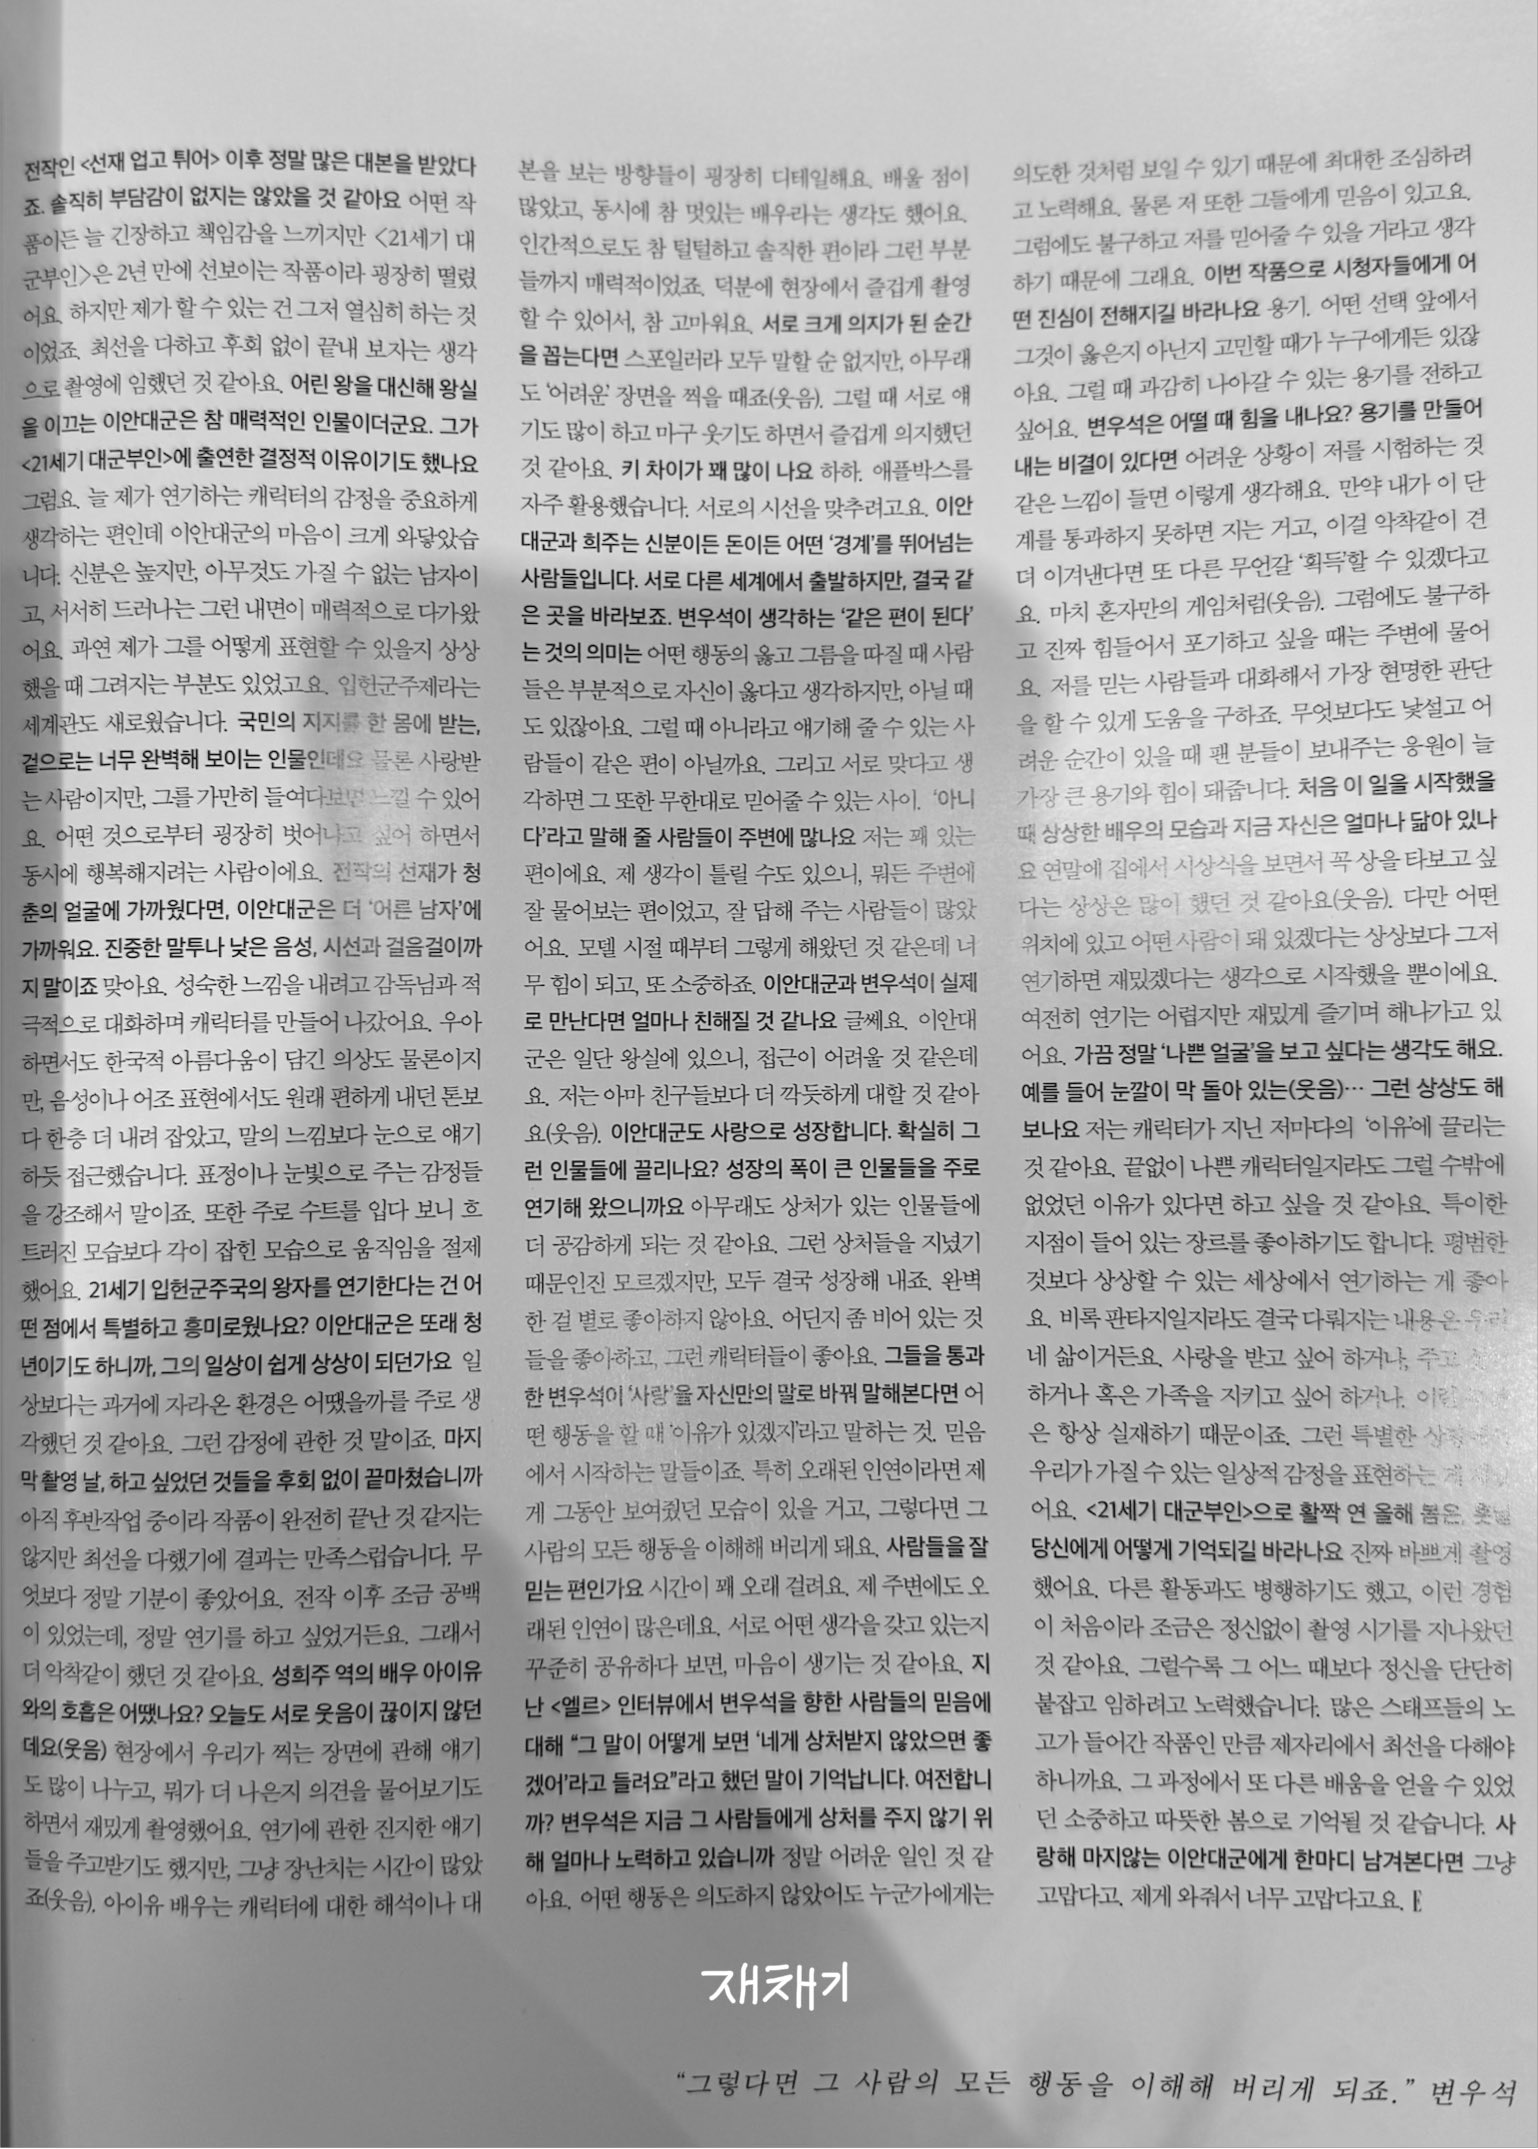 전작인 <선재 업고 튀어> 이후 정말 많은 대본을 받았다
죠. 솔직히 부담감이 없지는 않았을 것 같아요 어떤 작
품이든 늘 긴장하고 책임감을 느끼지만 <21세기 대
군부인>은 2년 만에 선보이는 작품이라 굉장히 떨렸
어요. 하지만 제가 할 수 있는 건 그저 열심히 하는 것
이었죠. 최선을 다하고 후회 없이 끝내 보자는 생각
으로 촬영에 임했던 것 같아요. 어린 왕을 대신해 왕실
을 이끄는 이안대군은 참 매력적인 인물이더군요. 그가
<21세기 대군부인>에 출연한 결정적 이유이기도 했나요
그럼요. 늘 제가 연기하는 캐릭터의 감정을 중요하게
생각하는 편인데 이안대군의 마음이 크게 와닿았습
니다. 신분은 높지만, 아무것도 가질 수 없는 남자이
고, 서서히 드러나는 그런 내면이 매력적으로 다가왔
어요. 과연 제가 그를 어떻게 표현할 수 있을지 상상
했을 때 그려지는 부분도 있었고요. 입헌군주제라는
세계관도 새로웠습니다. 국민의 지지를 한 몸에 받는,
겉으로는 너무 완벽해 보이는 인물인데요 물론 사랑받
는 사람이지만, 그를 가만히 들여다보면 느낄 수 있어
요. 어떤 것으로부터 굉장히 벗어나고 싶어 하면서
동시에 행복해지려는 사람이에요. 전작의 선재가 청
춘의 얼굴에 가까웠다면, 이안대군은 더 ‘어른 남자’에
가까워요. 진중한 말투나 낮은 음성, 시선과 걸음걸이까
지 말이죠 맞아요. 성숙한 느낌을 내려고 감독님과 적
극적으로 대화하며 캐릭터를 만들어 나갔어요. 우아
하면서도 한국적 아름다움이 담긴 의상도 물론이지
만, 음성이나 어조 표현에서도 원래 편하게 내던 톤보
다 한층 더 내려 잡았고, 말의 느낌보다 눈으로 얘기
하듯 접근했습니다. 표정이나 눈빛으로 주는 감정들
을 강조해서 말이죠. 또한 주로 수트를 입다 보니 흐
트러진 모습보다 각이 잡힌 모습으로 움직임을 절제
했어요. 21세기 입헌군주국의 왕자를 연기한다는 건 어
떤 점에서 특별하고 흥미로웠나요? 이안대군은 또래 청
년이기도 하니까, 그의 일상이 쉽게 상상이 되던가요 일
상보다는 과거에 자라온 환경은 어땠을까를 주로 생
각했던 것 같아요. 그런 감정에 관한 것 말이죠. 마지
막 촬영 날, 하고 싶었던 것들을 후회 없이 끝마쳤습니까
아직 후반작업 중이라 작품이 완전히 끝난 것 같지는
않지만 최선을 다했기에 결과는 만족스럽습니다. 무
엇보다 정말 기분이 좋았어요. 전작 이후 조금 공백
이 있었는데, 정말 연기를 하고 싶었거든요. 그래서
더 악착같이 했던 것 같아요. 성희주 역의 배우 아이유
와의 호흡은 어땠나요? 오늘도 서로 웃음이 끊이지 않던
데요(웃음) 현장에서 우리가 찍는 장면에 관해 얘기
도 많이 나누고, 뭐가 더 나은지 의견을 물어보기도
하면서 재밌게 촬영했어요. 연기에 관한 진지한 얘기
들을 주고받기도 했지만, 그냥 장난치는 시간이 많았
죠(웃음). 아이유 배우는 캐릭터에 대한 해석이나 대
본을 보는 방향들이 굉장히 디테일해요. 배울 점이
많았고, 동시에 참 멋있는 배우라는 생각도 했어요.
인간적으로도 참 털털하고 솔직한 편이라 그런 부분
들까지 매력적이었죠. 덕분에 현장에서 즐겁게 촬영
할 수 있어서, 참 고마워요. 서로 크게 의지가 된 순간
을 꼽는다면 스포일러라 모두 말할 순 없지만, 아무래
도 ‘어려운’ 장면을 찍을 때죠(웃음). 그럴 때 서로 얘
기도 많이 하고 마구 웃기도 하면서 즐겁게 의지했던
것 같아요. 키 차이가 꽤 많이 나요 하하. 애플박스를
자주 활용했습니다. 서로의 시선을 맞추려고요. 이안
대군과 희주는 신분이든 돈이든 어떤 ‘경계’를 뛰어넘는
사람들입니다. 서로 다른 세계에서 출발하지만, 결국 같
은 곳을 바라보죠. 변우석이 생각하는 ‘같은 편이 된다’
는 것의 의미는 어떤 행동의 옳고 그름을 따질 때 사람
들은 부분적으로 자신이 옳다고 생각하지만, 아닐 때
도 있잖아요. 그럴 때 아니라고 얘기해 줄 수 있는 사
람들이 같은 편이 아닐까요. 그리고 서로 맞다고 생
각하면 그 또한 무한대로 믿어줄 수 있는 사이. ‘아니
다’라고 말해 줄 사람들이 주변에 많나요 저는 꽤 있는
편이에요. 제 생각이 틀릴 수도 있으니, 뭐든 주변에
잘 물어보는 편이었고, 잘 답해 주는 사람들이 많았
어요. 모델 시절 때부터 그렇게 해왔던 것 같은데 너
무 힘이 되고, 또 소중하죠. 이안대군과 변우석이 실제
로 만난다면 얼마나 친해질 것 같나요 글쎄요. 이안대
군은 일단 왕실에 있으니, 접근이 어려울 것 같은데
요. 저는 아마 친구들보다 더 깍듯하게 대할 것 같아
요(웃음). 이안대군도 사랑으로 성장합니다. 확실히 그
런 인물들에 끌리나요? 성장의 폭이 큰 인물들을 주로
연기해 왔으니까요 아무래도 상처가 있는 인물들에
더 공감하게 되는 것 같아요. 그런 상처들을 지녔기
때문인진 모르겠지만, 모두 결국 성장해 내죠. 완벽
한 걸 별로 좋아하지 않아요. 어딘지 좀 비어 있는 것
들을 좋아하고, 그런 캐릭터들이 좋아요. 그들을 통과
한 변우석이 ‘사랑’을 자신만의 말로 바꿔 말해본다면 어
떤 행동을 할 때 ‘이유가 있겠지’라고 말하는 것. 믿음
에서 시작하는 말들이죠. 특히 오래된 인연이라면 제
게 그동안 보여줬던 모습이 있을 거고, 그렇다면 그
사람의 모든 행동을 이해해 버리게 돼요. 사람들을 잘
믿는 편인가요 시간이 꽤 오래 걸려요. 제 주변에도 오
래된 인연이 많은데요. 서로 어떤 생각을 갖고 있는지
꾸준히 공유하다 보면, 마음이 생기는 것 같아요. 지
난 <엘르> 인터뷰에서 변우석을 향한 사람들의 믿음에
대해 “그 말이 어떻게 보면 ‘네게 상처받지 않았으면 좋
겠어’라고 들려요”라고 했던 말이 기억납니다. 여전합니
까? 변우석은 지금 그 사람들에게 상처를 주지 않기 위
해 얼마나 노력하고 있습니까 정말 어려운 일인 것 같
아요. 어떤 행동은 의도하지 않았어도 누군가에게는
의도한 것처럼 보일 수 있기 때문에 최대한 조심하려
고 노력해요. 물론 저 또한 그들에게 믿음이 있고요.
그럼에도 불구하고 저를 믿어줄 수 있을 거라고 생각
하기 때문에 그래요. 이번 작품으로 시청자들에게 어
떤 진심이 전해지길 바라나요 용기. 어떤 선택 앞에서
그것이 옳은지 아닌지 고민할 때가 누구에게든 있잖
아요. 그럴 때 과감히 나아갈 수 있는 용기를 전하고
싶어요. 변우석은 어떨 때 힘을 내나요? 용기를 만들어
내는 비결이 있다면 어려운 상황이 저를 시험하는 것
같은 느낌이 들면 이렇게 생각해요. 만약 내가 이 단
계를 통과하지 못하면 지는 거고, 이걸 악착같이 견
뎌 이겨낸다면 또 다른 무언갈 ‘획득’할 수 있겠다고
요. 마치 혼자만의 게임처럼(웃음). 그럼에도 불구하
고 진짜 힘들어서 포기하고 싶을 때는 주변에 물어
요. 저를 믿는 사람들과 대화해서 가장 현명한 판단
을 할 수 있게 도움을 구하죠. 무엇보다도 낯설고 어
려운 순간이 있을 때 팬 분들이 보내주는 응원이 늘
가장 큰 용기와 힘이 돼줍니다. 처음 이 일을 시작했을
때 상상한 배우의 모습과 지금 자신은 얼마나 닮아 있나
요 연말에 집에서 시상식을 보면서 꼭 상을 타보고 싶
다는 상상은 많이 했던 것 같아요(웃음). 다만 어떤
위치에 있고 어떤 사람이 돼 있겠다는 상상보다 그저
연기하면 재밌겠다는 생각으로 시작했을 뿐이에요.
여전히 연기는 어렵지만 재밌게 즐기며 해나가고 있
어요. 가끔 정말 ‘나쁜 얼굴’을 보고 싶다는 생각도 해요.
예를 들어 눈깔이 막 돌아 있는(웃음)… 그런 상상도 해
보나요 저는 캐릭터가 지닌 저마다의 ‘이유’에 끌리는
것 같아요. 끝없이 나쁜 캐릭터일지라도 그럴 수밖에
없었던 이유가 있다면 하고 싶을 것 같아요. 특이한
지점이 들어 있는 장르를 좋아하기도 합니다. 평범한
것보다 상상할 수 있는 세상에서 연기하는 게 좋아
요. 비록 판타지일지라도 결국 다뤄지는 내용은 우리
네 삶이거든요. 사랑을 받고 싶어 하거나, 주고
하거나 혹은 가족을 지키고 싶어 하거나.
은 항상 실재하기 때문이죠. 그런 특별한
우리가 가질 수 있는 일상적 감정을 표현하는 게
어요. <21세기 대군부인>으로 활짝 연 올해 봄은, 훗날
당신에게 어떻게 기억되길 바라나요 진짜 바쁘게 촬영
했어요. 다른 활동과도 병행하기도 했고, 이런 경험
이 처음이라 조금은 정신없이 촬영 시기를 지나왔던
것 같아요. 그럴수록 그 어느 때보다 정신을 단단히
붙잡고 임하려고 노력했습니다. 많은 스태프들의 노
고가 들어간 작품인 만큼 제자리에서 최선을 다해야
하니까요. 그 과정에서 또 다른 배움을 얻을 수 있었
던 소중하고 따뜻한 봄으로 기억될 것 같습니다. 사
랑해 마지않는 이안대군에게 한마디 남겨본다면 그냥
고맙다고. 제게 와줘서 너무 고맙다고요. E
재채기
“그렇다면 그 사람의 모든 행동을 이해해 버리게 되죠.” 변우석